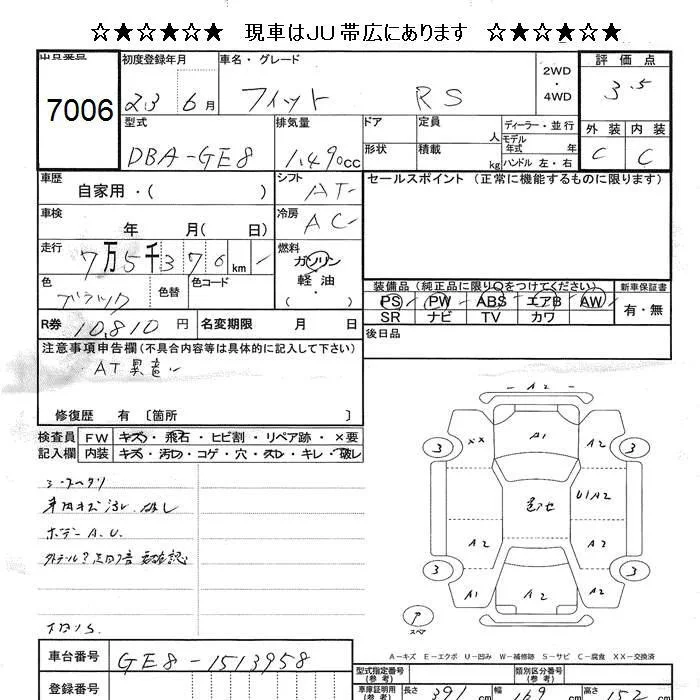 ☆★☆★☆★☆ 現車はJU帯広にあります ☆★☆★☆★☆
出品番号 初度登録年月 車名・グレード 2WD ・ 4WD 評価点
7006 23 6月 フィット RS 3.5
型式 排気量 ドア 定員 人 ディーラー・並行 外装 内装
DBA-GE8 1.490cc 形状 積載 kg モデル年式 年 ハンドル 左・右 C C
車歴 自家用・( ) シフト AT セールスポイント (正常に機能するものに限ります)
車検 年 月( 日) 冷房 AC
走行 7万5千376km 燃料 ガソリン
色 ブラック 色替 色コード 軽油 ・ 装備品 (純正品に限り○をつけてください) 新車保証書
PS PW ABS エアB AW 有・無
SR ナビ TV カワ
R券 10,810円 名変期限 月 日 後日品
注意事項申告欄 (不具合内容等は具体的に記入して下さい)
AT異音
修復歴 有 〔箇所 〕
検査員 FW キズ・飛石・ヒビ割・リペア跡・×要
記入欄 内装 キズ・汚れ・コゲ・穴・スレ・キレ・破レ
車内キズ 汚レ
ボデー A.U.
要確認
A2
XX A1 A2 3 3
U1A2
A2 A2
3 3
A1 A2 A2
スペア
A-キズ E-エクボ U-凹み W-補修跡 S-サビ C-腐食 XX-交換済
車台番号 GE8-1513958 型式指定番号 (参考) 類別区分番号 (参考)
登録番号 車庫証明用 (参考) 長さ 391 cm 幅 169 cm 高さ 152 cm